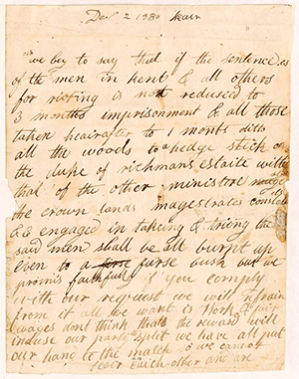 Dec 2 1830
we beg to say that if the sentence
of the men in kent & all others
for rioting is not redused to
3 months imprisonment & all those
taken heairafter to 1 months ditto
all the woods hedge stick on
the duke of richmans estaite with
that of the other ministre
the crown lands magestrates
&c engaged in takeing & trieng the
said men shall be all burnt up
even to a furse bush but we
promis faithfully if you comply
with our request we will refrain
from it all we want is work &
wages dont think that the reward will
induse our party split we have all put
our hand to the match & we cannot
each other